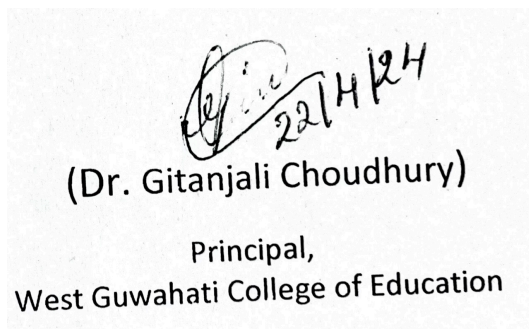 22/4/24
(Dr. Gitanjali Choudhury)
Principal,
West Guwahati College of Education